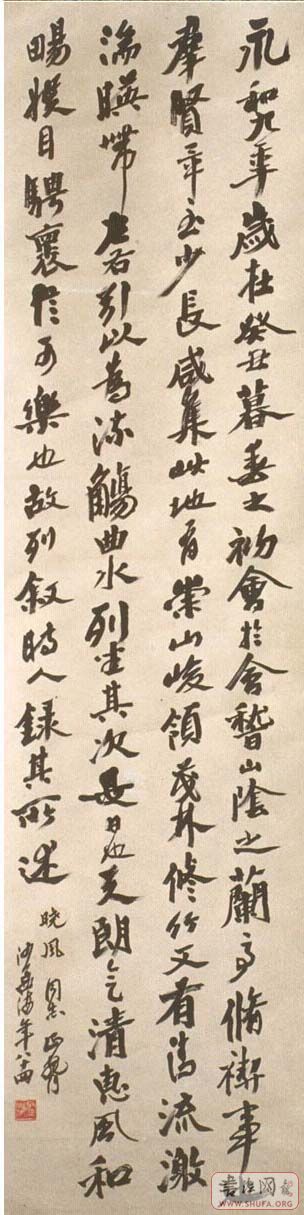 永和九年歲在癸丑暮春之初會於會稽山陰之蘭亭脩禊事
羣賢畢至少長咸集此地有崇山峻領茂林修竹又有清流激
湍暎帶左右引以為流觴曲水列坐其次是日也天朗气清惠風和
暢娛目騁懷信可樂也故列敘時人錄其所述
曉風同志正
沙孟海年八
WWW.SHUFA.ORG